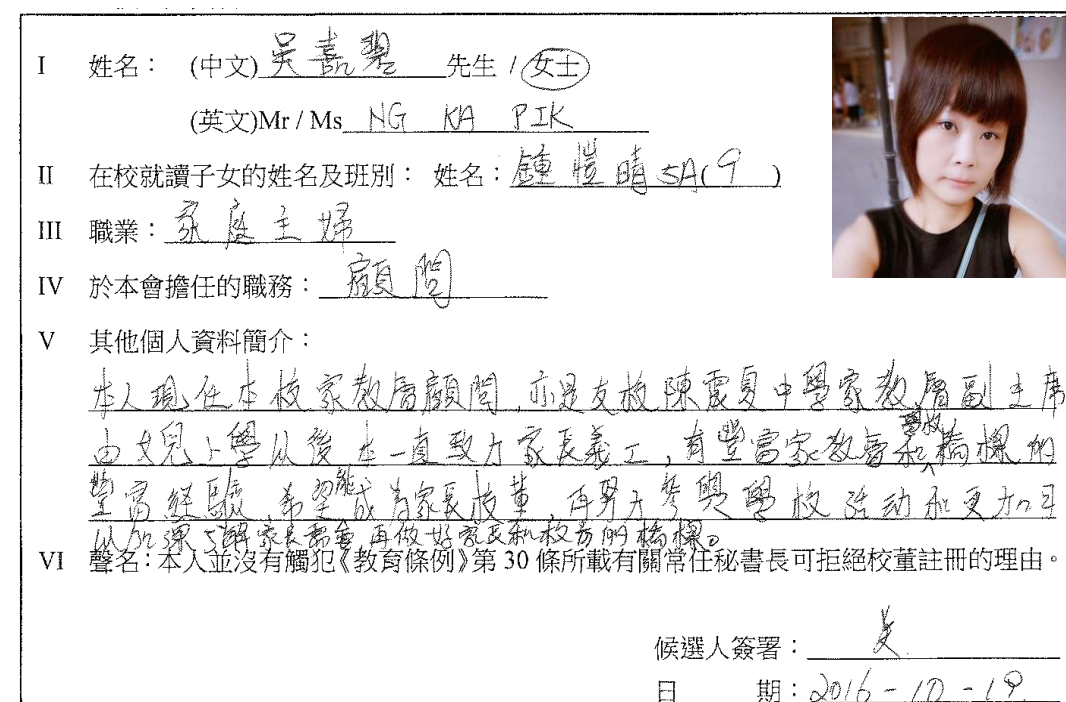 I 姓名： (中文) 吳嘉碧 先生 / 女士
(英文)Mr / Ms NG KA PIK
II 在校就讀子女的姓名及班別： 姓名：鍾愷晴 5A( 9 )
III 職業： 家庭主婦
IV 於本會擔任的職務： 顧問
V 其他個人資料簡介：
本人現任本校家教會顧問，亦是友校陳震夏中學家教會副主席
由女兒上學从後 本一直致力家長義工，有豐富家教會和學校橋樑的
豐富經驗，希望能成為家長校董，再努力參與學校活动和更加
以加深了解家長需要 再做好家長和校方的橋樑。
VI 聲名：本人並沒有觸犯《教育條例》第 30 條所載有關常任秘書長可拒絕校董註冊的理由。
候選人簽署：
日 期：2016-10-19